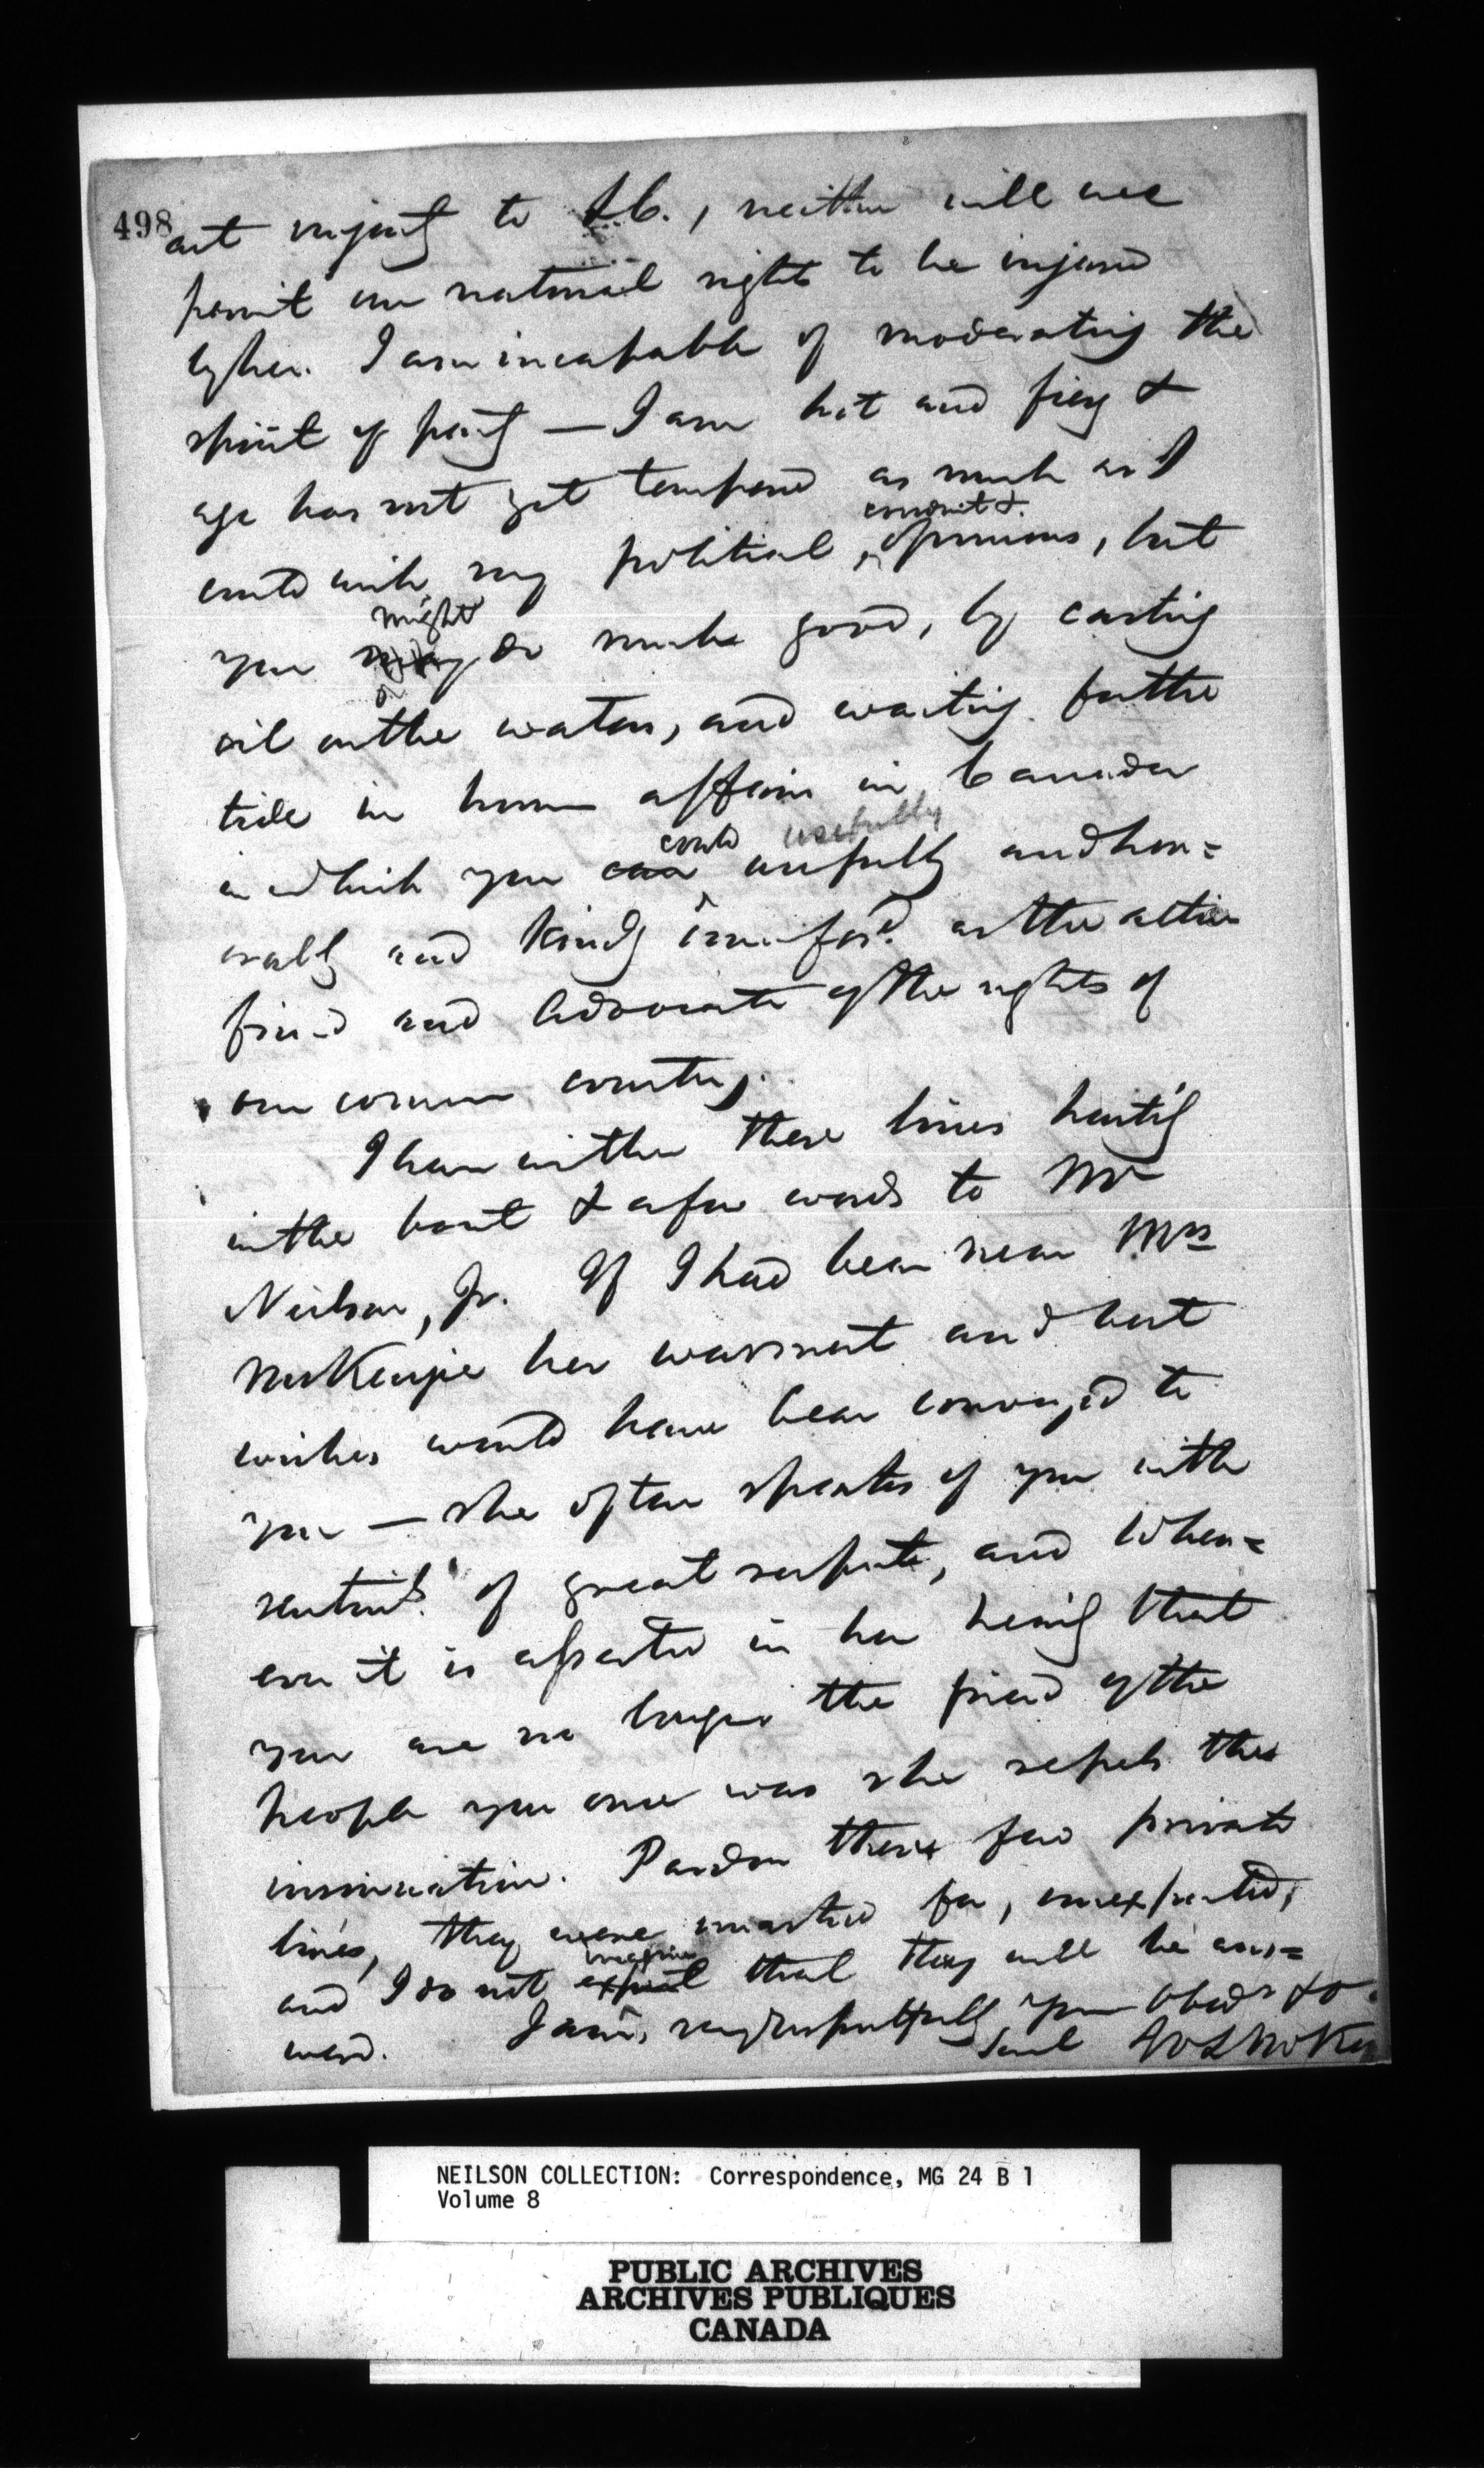 498
act unjustly to L C., neither will we
permit our natural rights to be injured
by her. I am incapable of moderating the
spirit of party — I am hot and fiery &
age has not yet tempered as much as I
conduct &
could wish my political opinions, but
might
you may do much good, by casting
oil on the waters, and waiting for the
tide in human affairs in Canada
could usefully
in which you can usefully and hon=
orably and kindly as the active
friend and advocate of the rights of
our common country.
I have written these lines hastily
in the boat & a few words to Mr
Neilson, Jr. If I had been near Mrs
McKenzie her warmest and best
wishes would have been conveyed to
you — she often speaks of you with
sentimts of great respect, and when=
ever it is asserted in her hearing that
you are no longer the friend of the
people you once was she repels the
insinuation. Pardon these few private
lines, they were unasked for, unexpected,
imagine
and I do not expect that they will be ans=
wered. I am, very respectfully your obedt &
Servt W L McKen
NEILSON COLLECTION: Correspondence, MG 24 B 1
Volume 8
PUBLIC ARCHIVES
ARCHIVES PUBLIQUES
CANADA